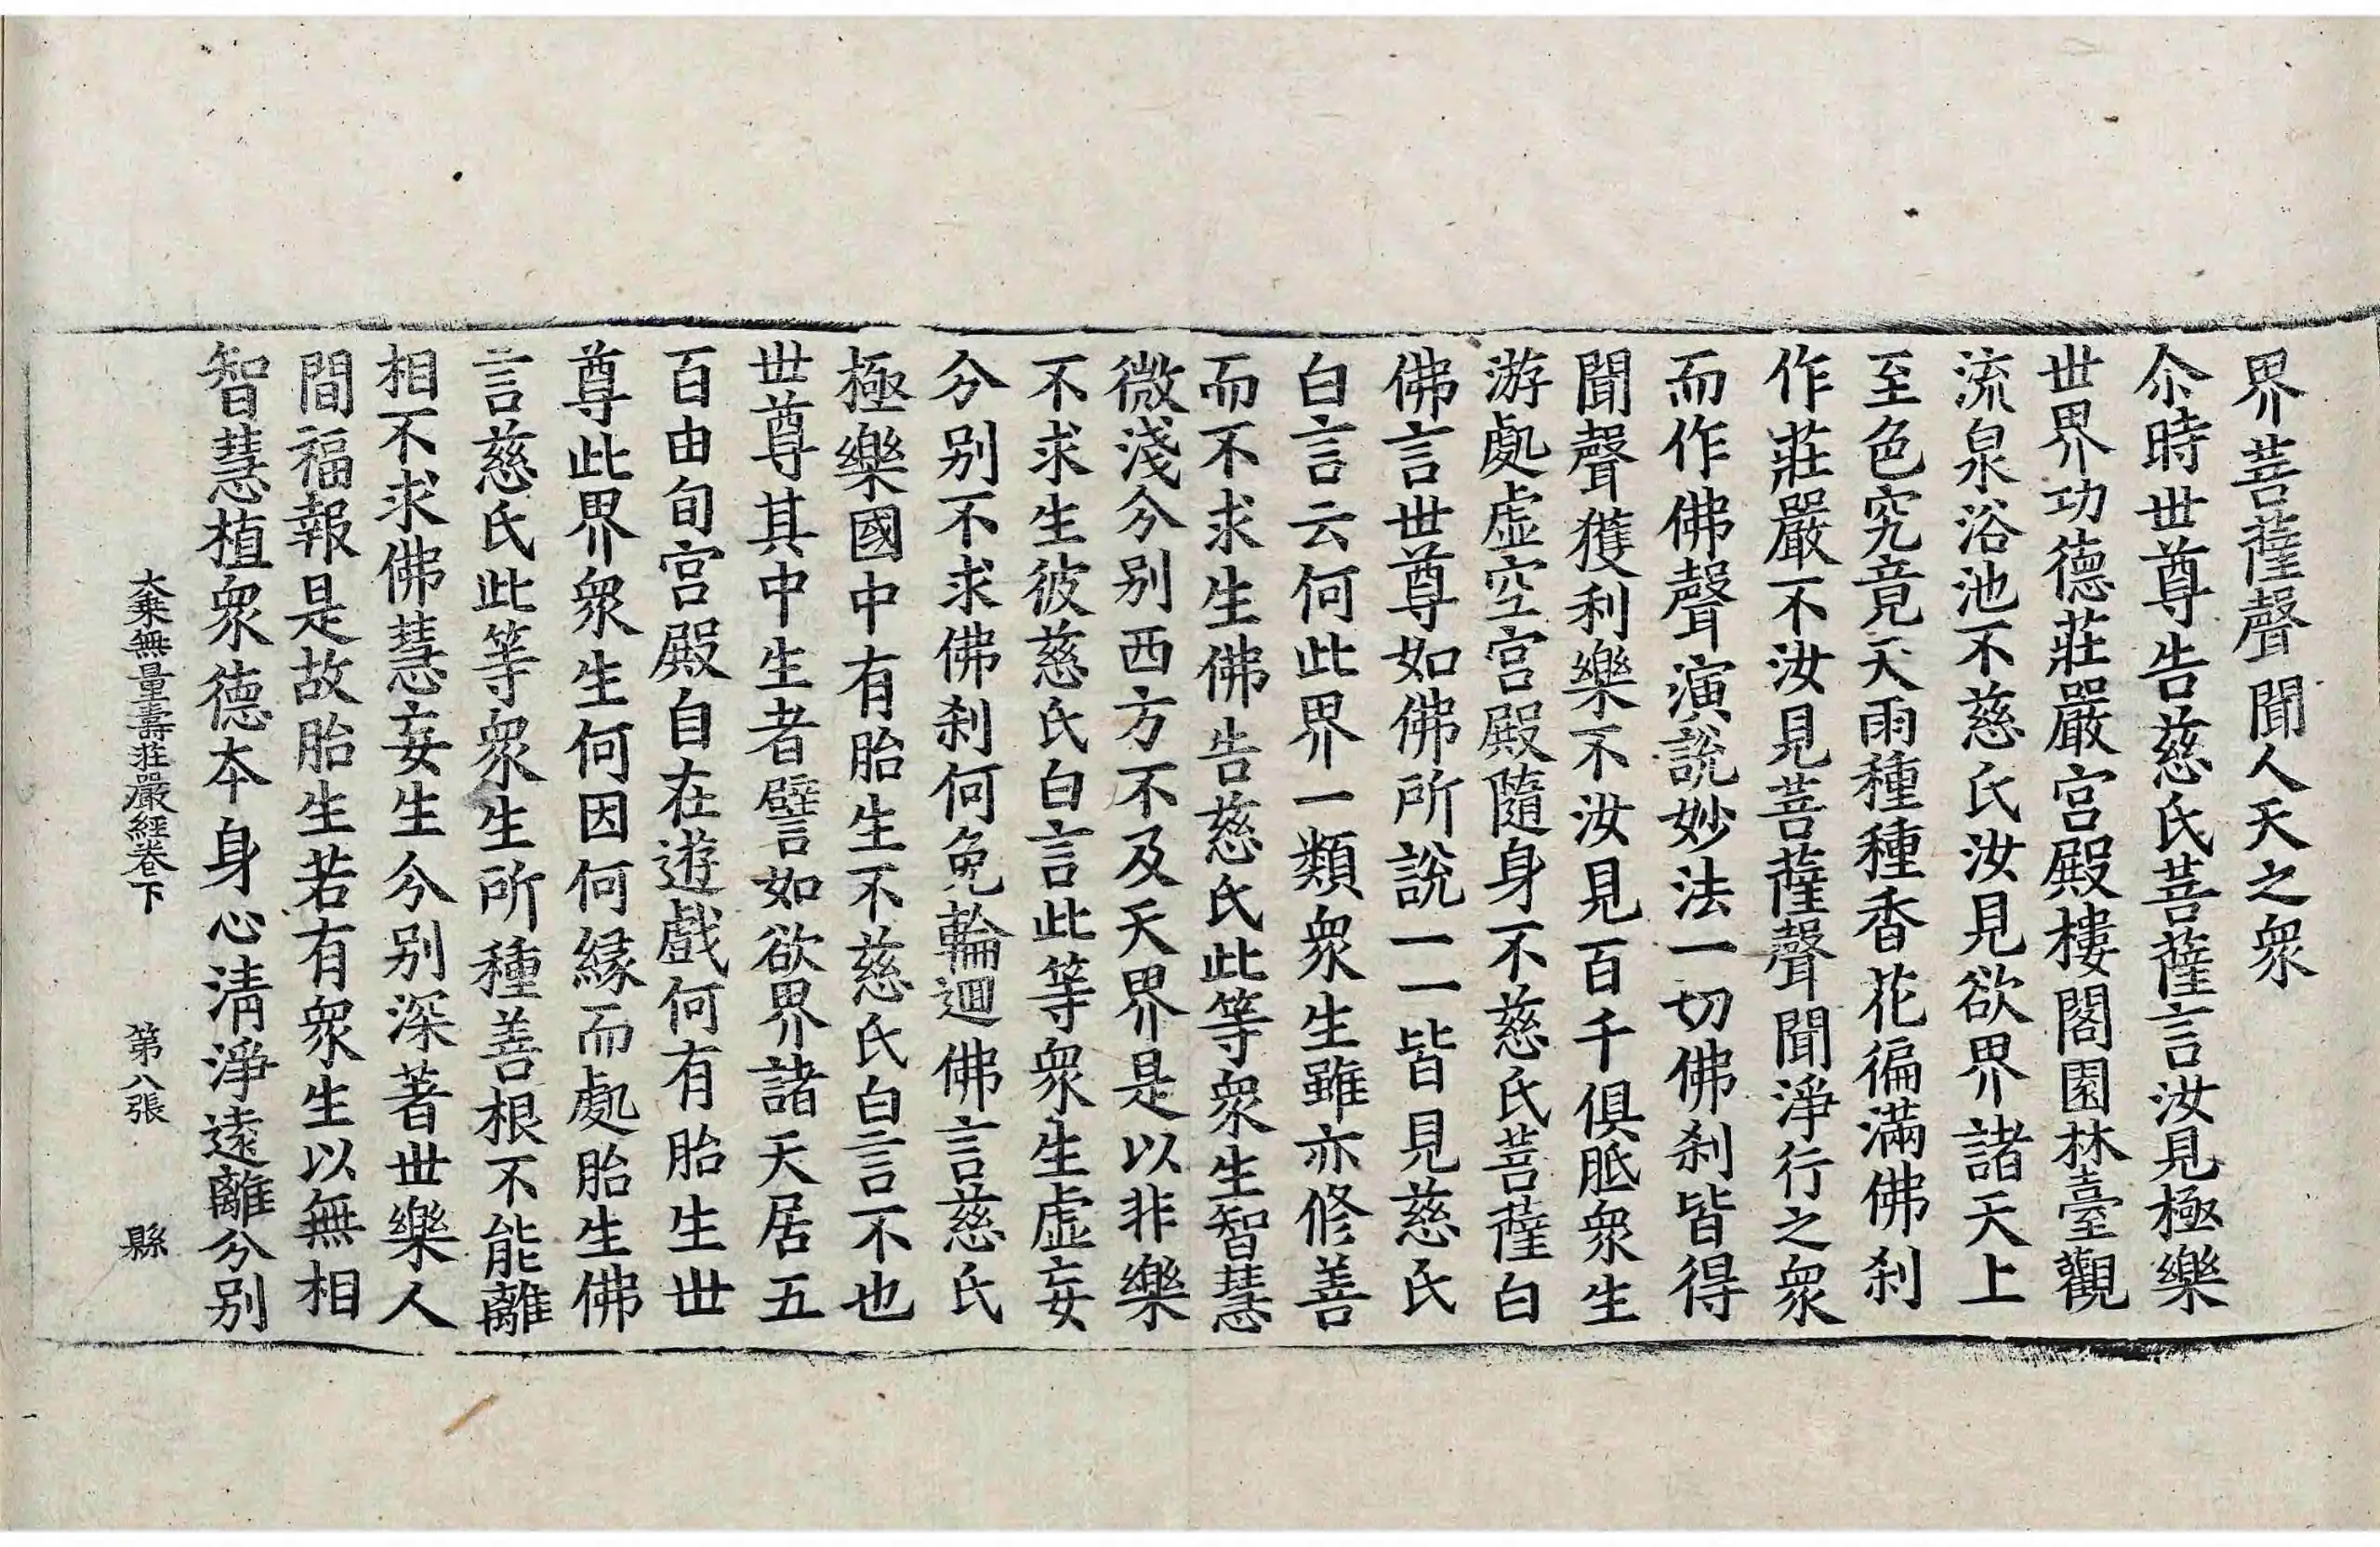 界菩薩聲聞人天之衆
尒時世尊告慈氏菩薩言汝見極樂
世界功德莊嚴宮殿樓閣園林臺觀
流泉浴池不慈氏汝見欲界諸天上
至色究竟天雨種種香花徧滿佛刹
作莊嚴不汝見菩薩聲聞淨行之衆
而作佛聲演說妙法一切佛刹皆得
聞聲獲利樂不汝見百千俱胝衆生
游處虛空宮殿隨身不慈氏菩薩白
佛言世尊如佛所說一一皆見慈氏
白言云何此界一類衆生雖亦修善
而不求生佛告慈氏此等衆生智慧
微淺分别西方不及天界是以非樂
不求生彼慈氏白言此等衆生虛妄
分别不求佛刹何免輪迴佛言慈氏
極樂國中有胎生不慈氏白言不也
世尊其中生者譬如欲界諸天居五
百由旬宮殿自在遊戲何有胎生世
尊此界衆生何因何緣而處胎生佛
言慈氏此等衆生所種善根不能離
相不求佛慧妄生分别深著世樂人
間福報是故胎生若有衆生以無相
智慧植衆德本身心清淨遠離分别
大乗無量壽莊嚴經卷下 第八張 縣